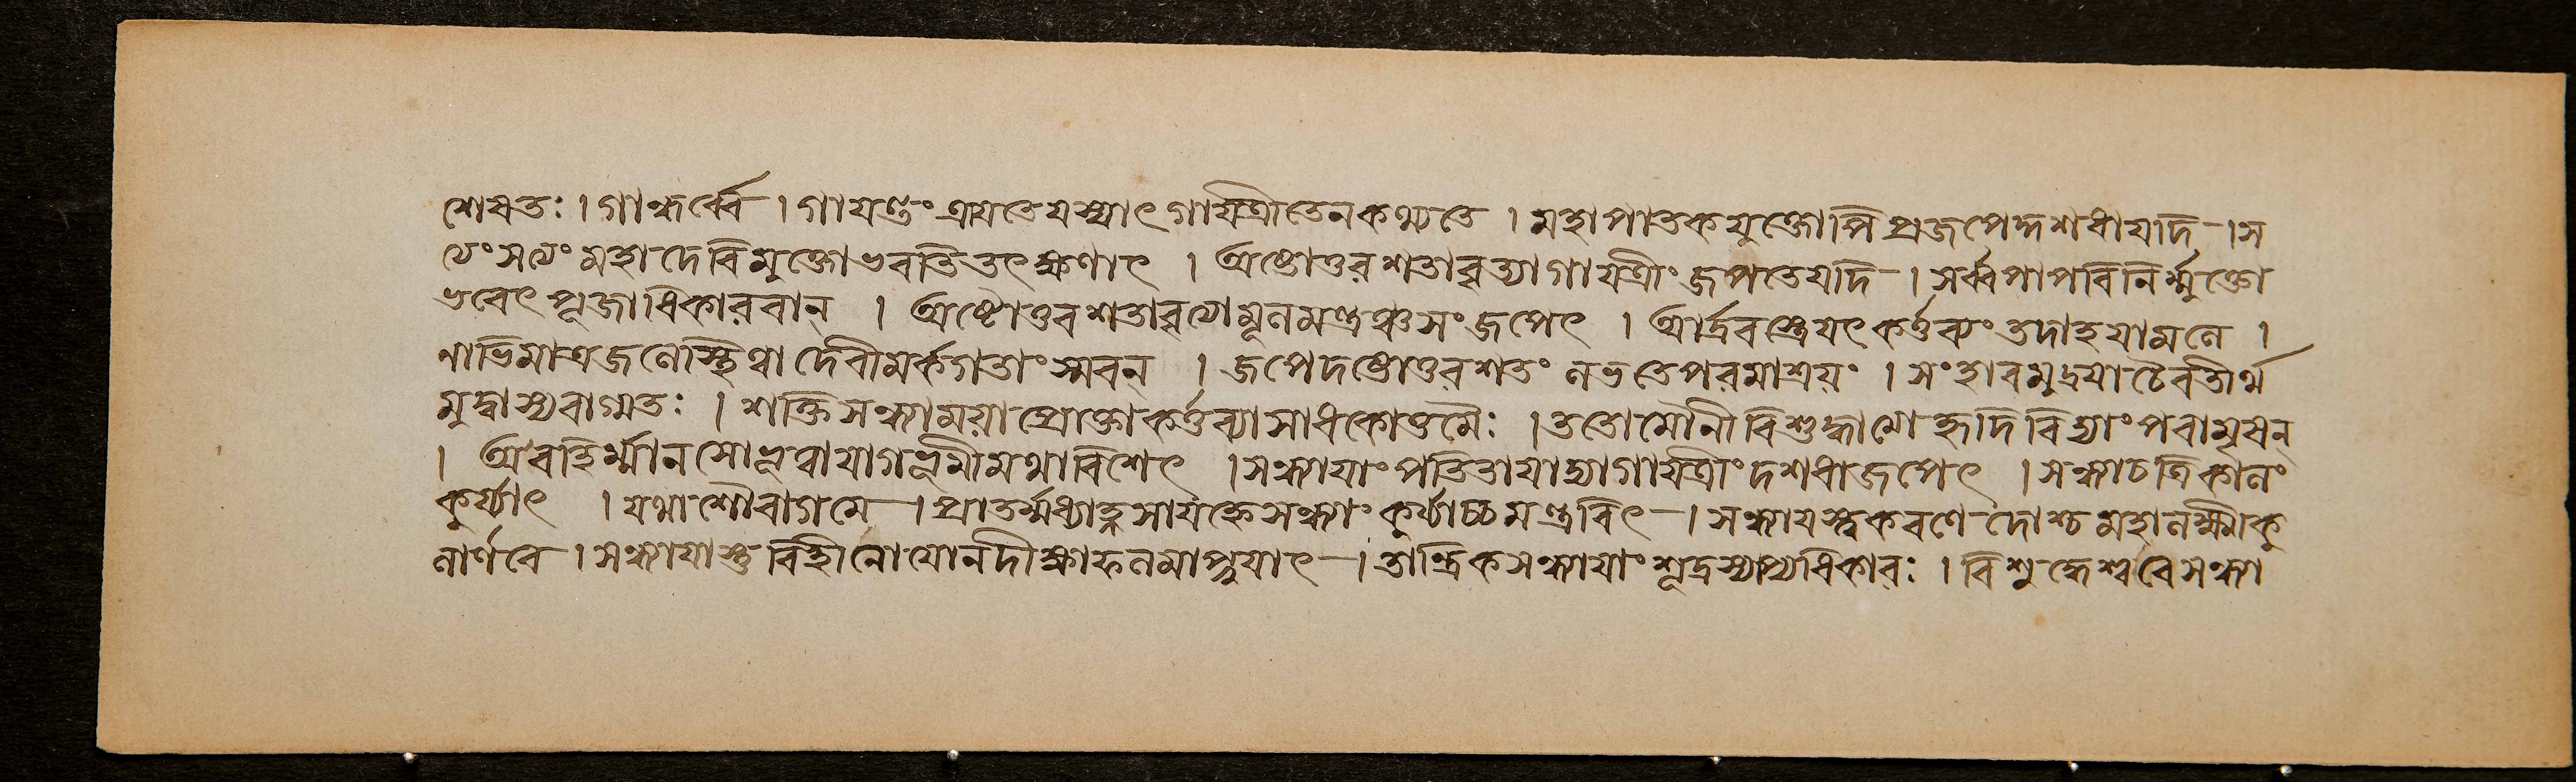 শেষতঃ । গান্ধর্ব্বে । গাযণ্ডং ত্রাযতে যস্মাৎ গাযত্রী তেন কথ্যতে । মহাপাতকযুক্তোপি প্রজপেদ্দশধা যদি । স
ত্যং সত্যং মহাদেবি মুক্তো ভবতি তৎক্ষণাৎ । অষ্টোত্তরশতাবৃত্যা গাযত্রীং জপতে যদি । সর্ব্বপাপবিনির্ম্মুক্তো
ভবেৎ পূজাধিকারবান্ । অষ্টোত্তরশতাবৃত্যো মূলমন্ত্রঞ্চ সংজপেৎ । আর্দ্রবস্ত্রে যৎ কর্ত্তব্যং তদাহ যামলে ।
নাভিমাত্রজলে স্থিত্বা দেবীমর্কগতাং স্মরন্ । জপেদষ্টোত্তরশতং লভতে পরমাশ্রয়ং । সংহারমুদ্রযা চৈব তীর্থ
মুদ্বাস্য বাগ্মতঃ । শক্তিসন্ধ্যা ময়া প্রোক্তা কর্ত্তব্যা সাধকোত্তমৈঃ । ততো মৌনী বিশুদ্ধাত্মা হৃদি বিদ্যাং পরামৃষন্
। অবহির্ম্মানসো ভূত্বা যাগভূমীমথাবিশেৎ । সন্ধ্যাযাং পতিতাযাম্বা গাযত্রীং দশধা জপেৎ । সন্ধ্যা চ ত্রিকালং
কুর্য্যাৎ । যথা শৌবাগমে । প্রাতর্ম্মধ্যাহ্নসাযংহ্নে সন্ধ্যাং কুর্য্যাচ্চ মন্ত্রবিৎ । সন্ধ্যাযস্ত্বকরণে দোষ্চ মহানক্ষ্মীকু
লার্ণবে । সন্ধ্যাযাস্তু বিহীনো যো ন দীক্ষাফলমাপ্নুযাৎ । তান্ত্রিকসন্ধ্যাযাং শূদ্রস্যাপ্যধিকারঃ । বিশুদ্ধেশ্বরে সন্ধ্যা